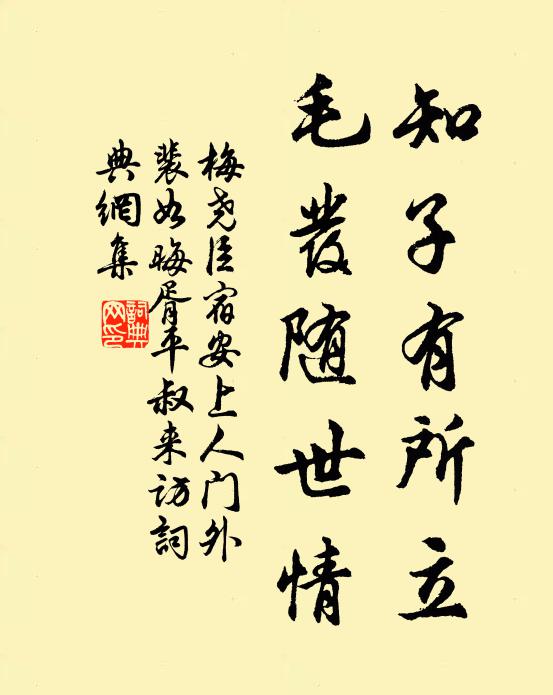 知子有所立
毛發随世情
梅尧臣宿安上人门外
裴如晦胥平叔来访詞
典網集
詞典网印